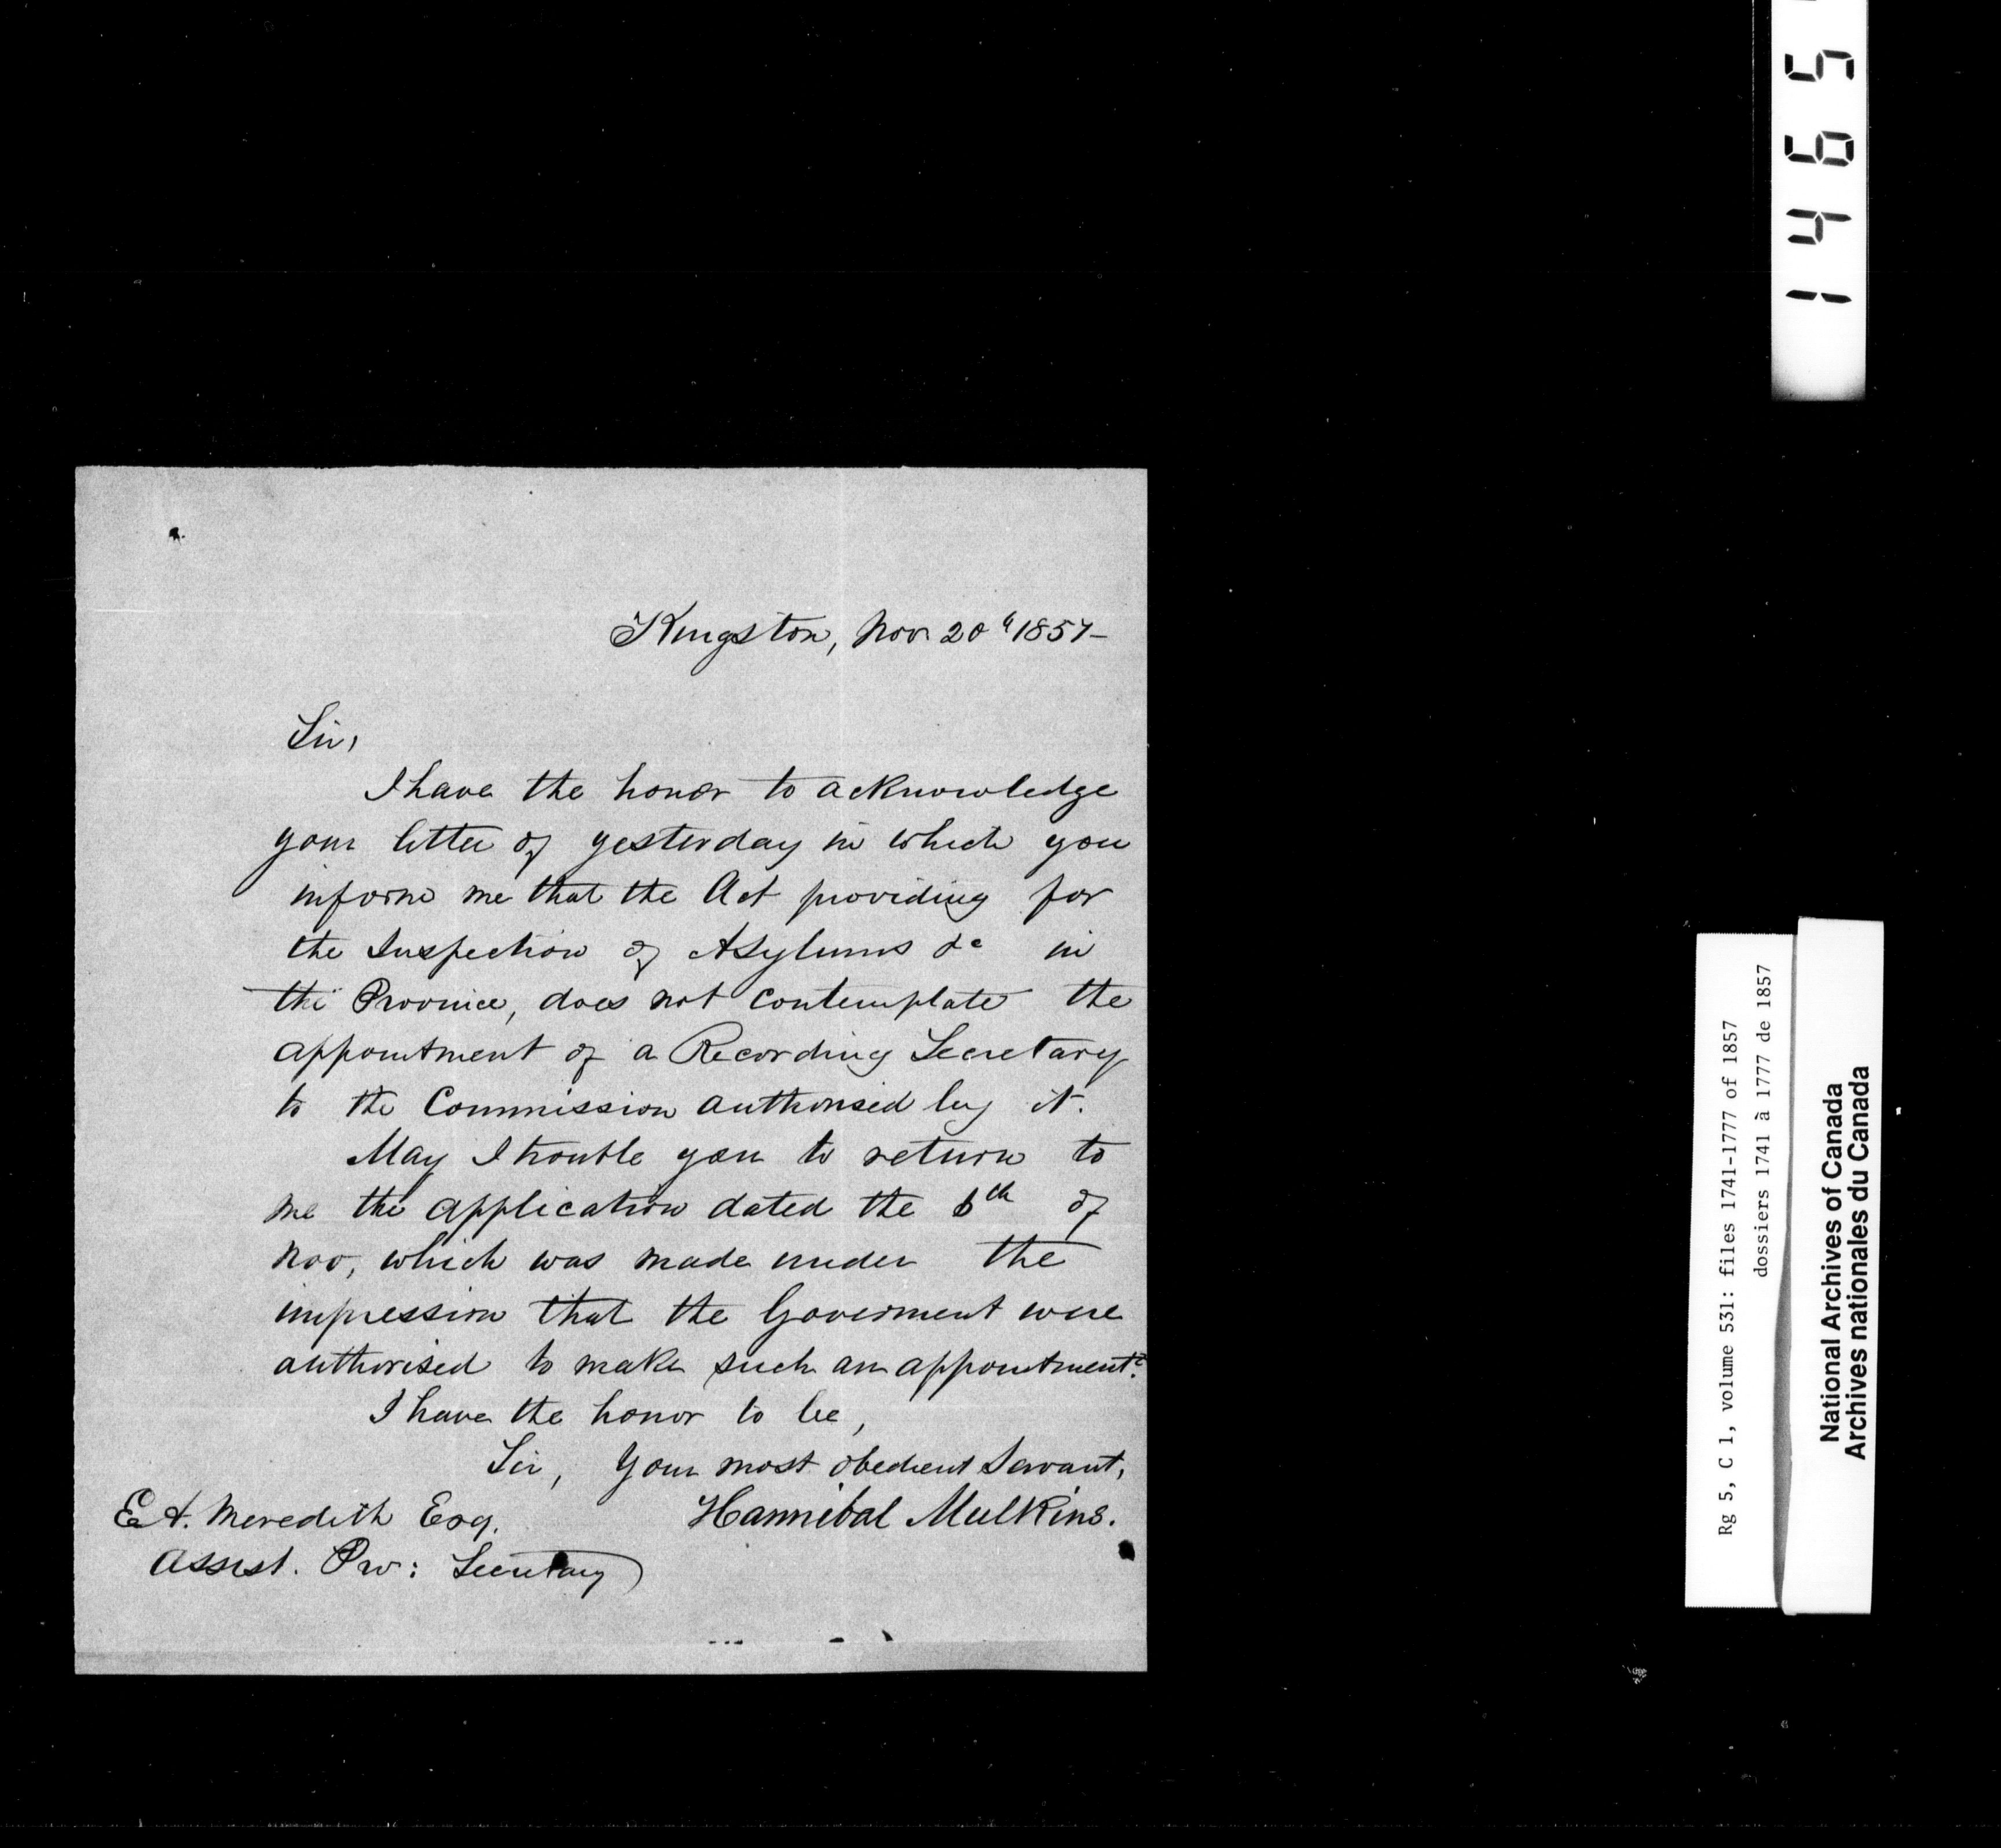 Kingston, Nov. 20th 1857-
Sir,
I have the honor to acknowledge
your letter of yesterday in which you
inform me that the Act providing for
the Inspection of Asylums &c in
the Province, does not contemplate the
appointment of a Recording Secretary
to the Commission authorised by it.
May I trouble you to return to
me the application dated the 6th of
Nov, which was made under the
impression that the Government were
authorised to make such an appointment?
I have the honor to be,
Sir, Your most obedient Servant,
Hannibal Mulkins.
E A. Meredith Esq.
Assist. Pro: Secretary
1465
Rg 5, C 1, volume 531: files 1741-1777 of 1857
dossiers 1741 à 1777 de 1857
National Archives of Canada
Archives nationales du Canada